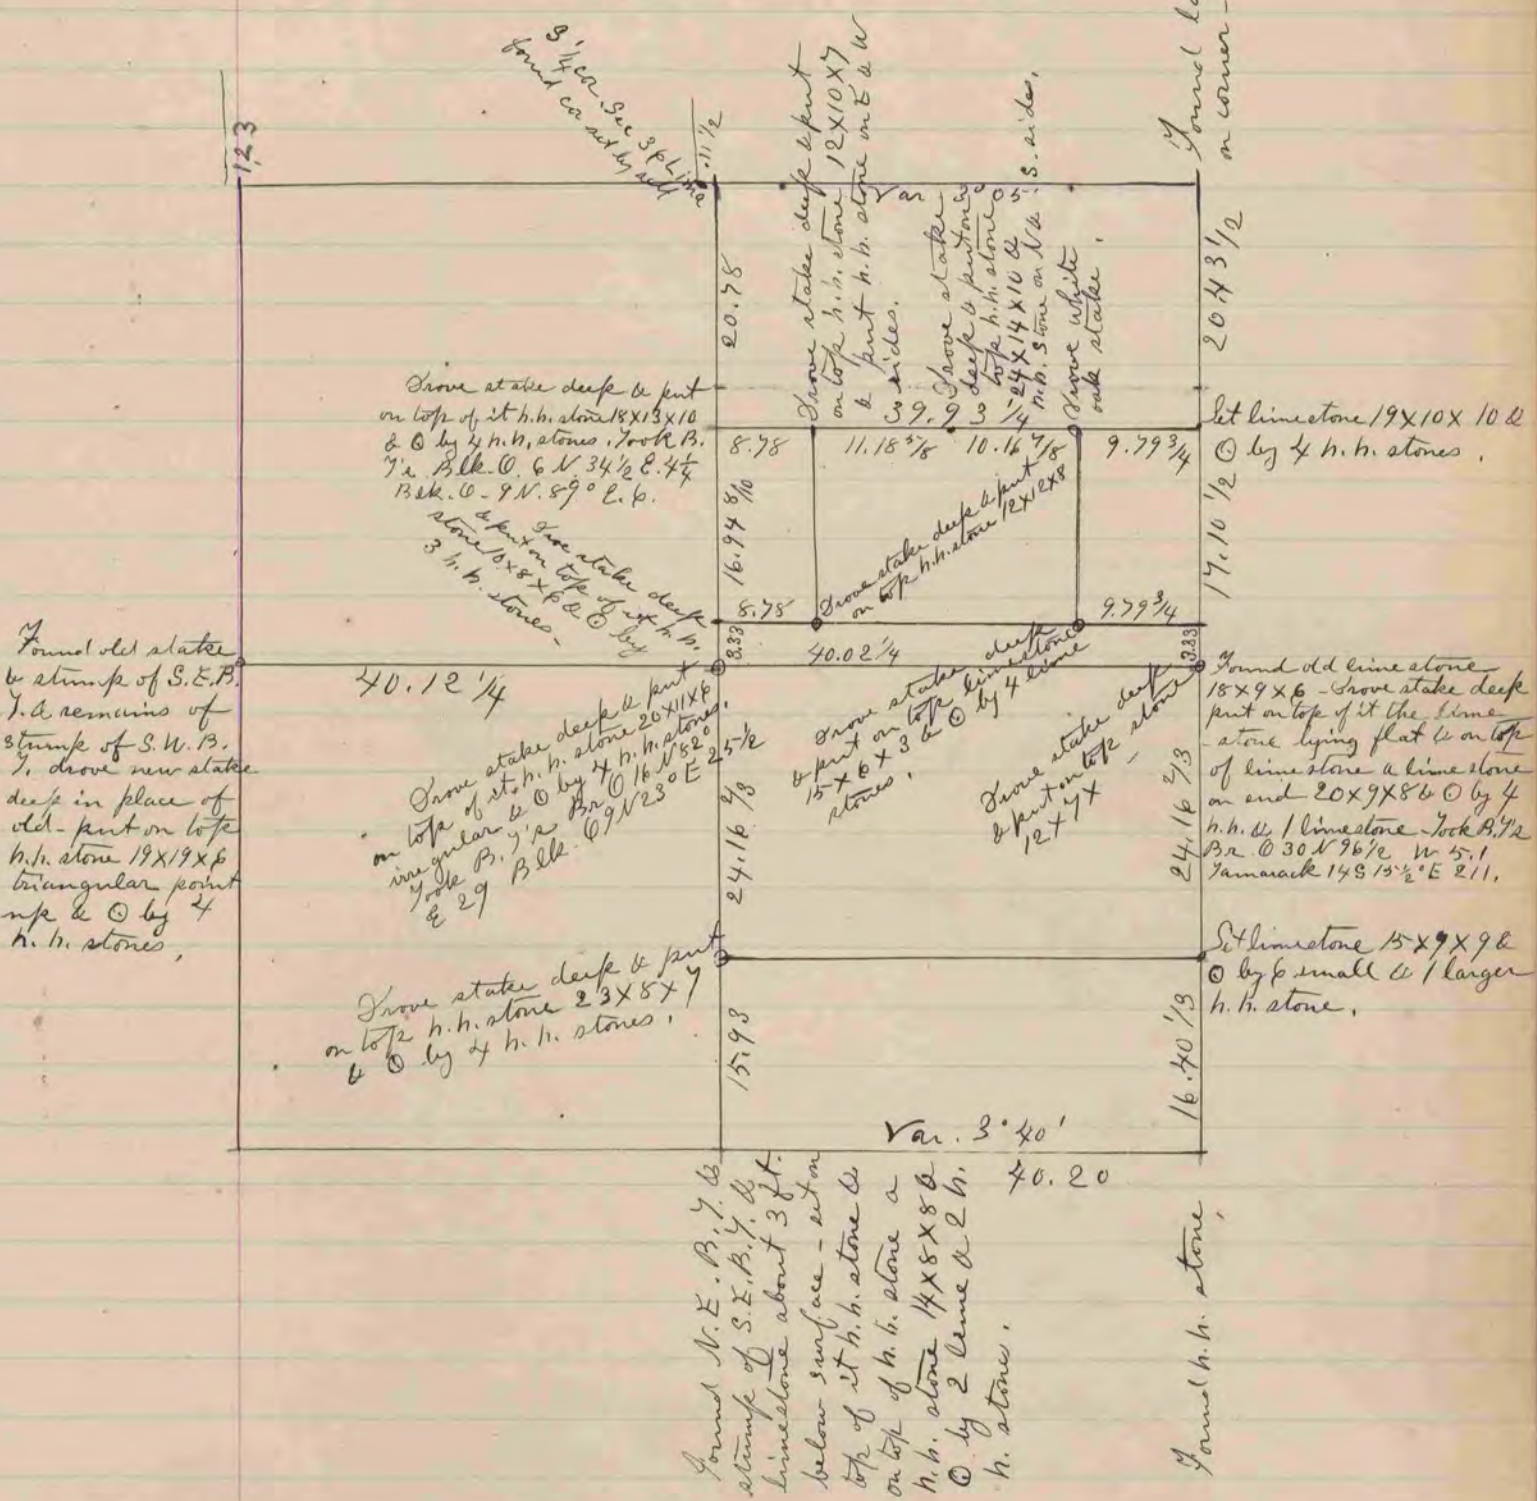 123
3 1/4 cor. Sec 36 Lime
found cor set by self
.11 1/2
Drove stake deep & put
on top h.h. stone 12X10X7
& put h.h. stone on E & W
sides.
Var 3° 05'
Drove stake
deep & put on
top h.h. stone
24X14X10 &
h.h. stone on N & S. sides.
Drove white
oak stake.
Found
on corner -
20.78
20.43 1/2
39.93 1/4
Drove stake deep & put
on top of it h.h. stone 18X13X10
& ⊙ by 4 h.h. stones. Took B.
T's Blk. O. 6 N. 34 1/2 E. 4 1/4
Blk. O - 9 N. 89° E. 6.
8.78
11.18 5/8
10.16 7/8
9.79 3/4
Set limestone 19X10X10 &
⊙ by 4 h.h. stones.
16.94 8/10
17.10 1/2
Drove stake deep
& put on top of it h.h.
stone 10X8X6 & ⊙ by
3 h.h. stones -
Drove stake deep & put
on top h.h. stone 12X12X8
8.78
9.79 3/4
3.33
3.33
40.02 1/4
40.12 1/4
Found old stake
& stump of S.E.B.
T. & remains of
stump of S.W.B.
T. drove new stake
deep in place of
old - put on top
h.h. stone 19X19X6
triangular point
up & ⊙ by 4
h.h. stones,
Drove stake deep & put
on top of it h.h. stone 20X11X6
irregular & ⊙ by 4 h.h. stones.
Took B.T's Br O 16 N 82°
E 29 Blk. O 9 N 23° E 25 1/2
Drove stake deep
& put on top limestone
15X6X3 & ⊙ by 4 lime
stones.
Drove stake deep
& put on top stone
12X7X
Found old lime stone
18X9X6 - Drove stake deep
put on top of it the lime
-stone lying flat & on top
of limestone a limestone
on end 20X9X8 & ⊙ by 4
h.h. & 1 limestone - Took B.T's
Br. O 30 N 96 1/2 W 5.1
Tamarack 14 S 15 1/2° E 211.
24.16 2/3
24.16 2/3
Drove stake deep & put
on top h.h. stone 23X8X7
& ⊙ by 4 h.h. stones.
Set limestone 15X9X9 &
⊙ by 6 small & 1 larger
h.h. stone.
15.93
16.40 1/3
Var. 3° 40'
40.20
Found N.E.B.T. &
stump of S.E.B.T. &
limestone about 3 ft.
below surface - set on
top of it h.h. stone &
on top of h.h. stone a
h.h. stone 14X8X8 &
⊙ by 2 lime & 2 h.
h. stones.
Found h.h. stone,